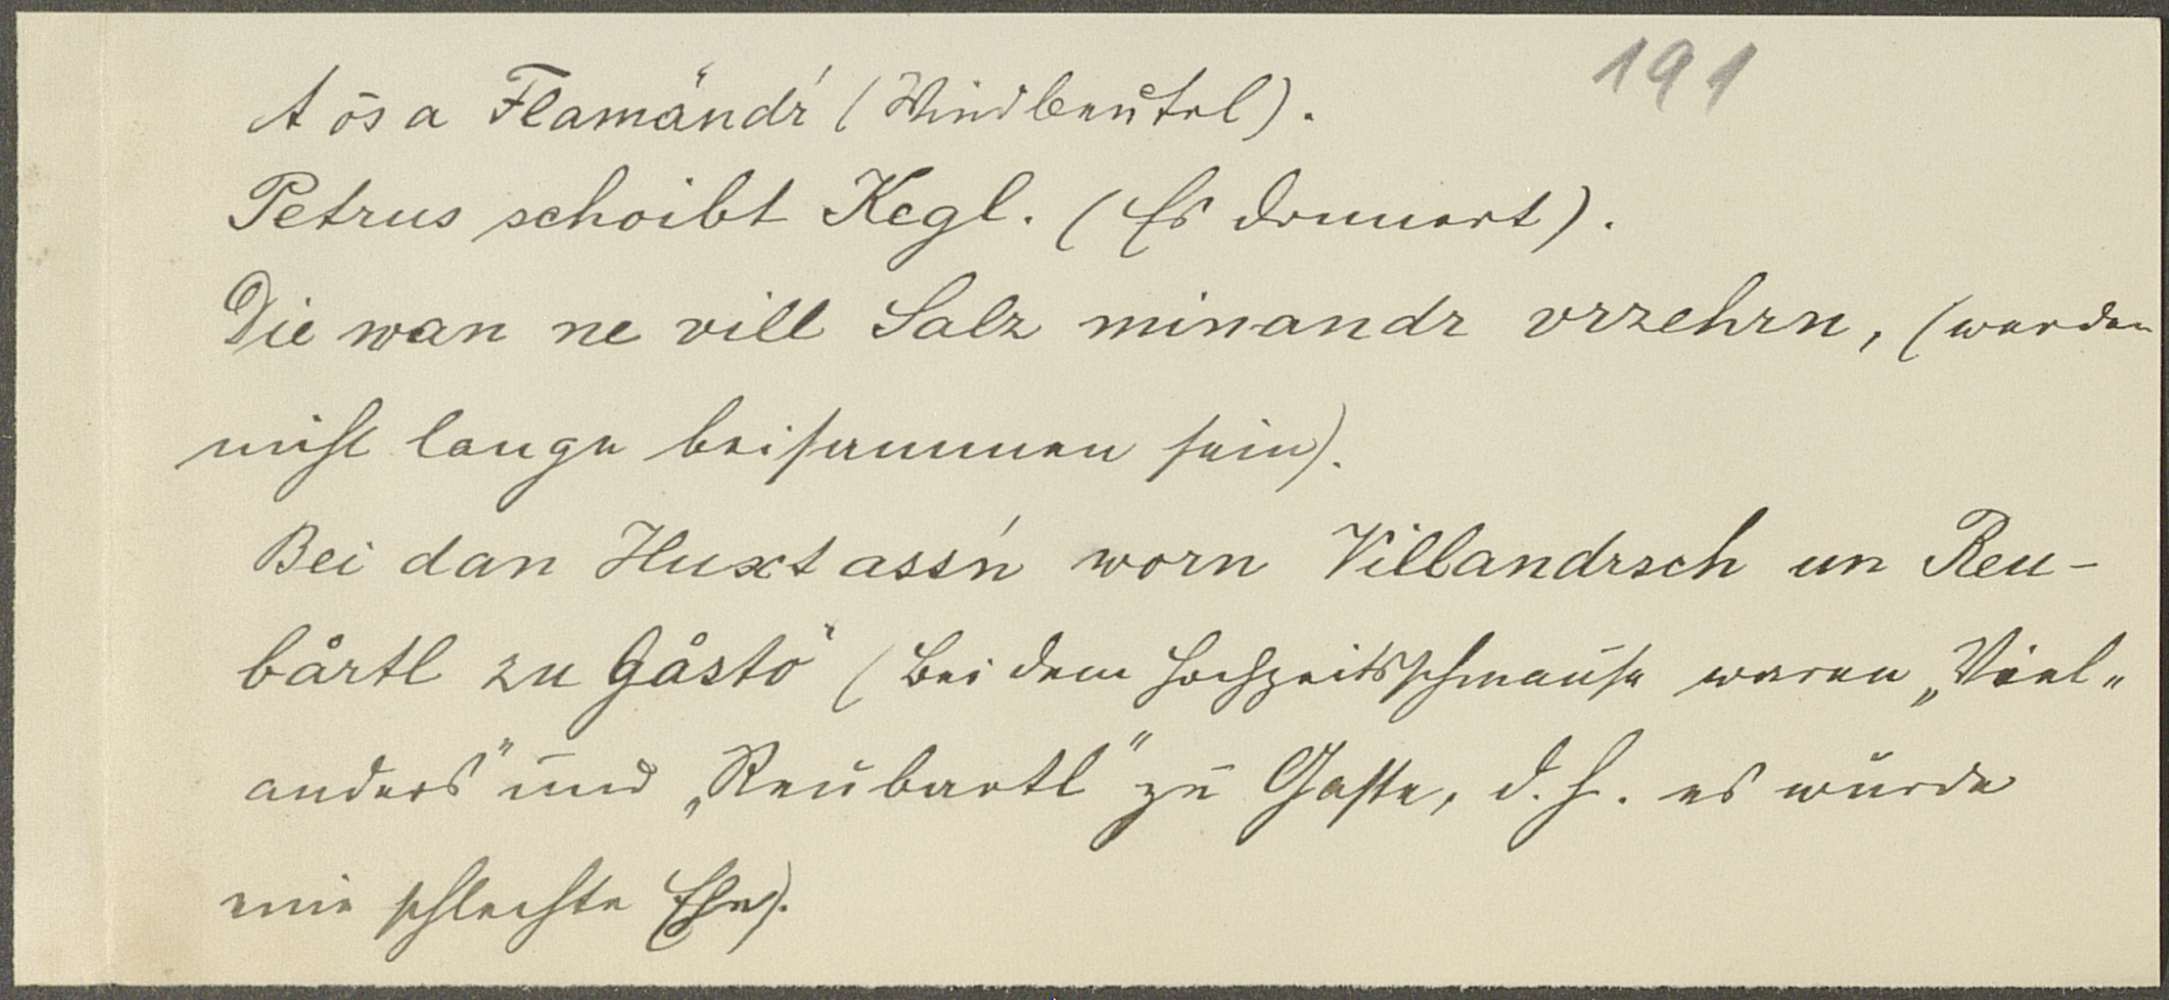 191
A ōs a Flamändr' (Windbeutel).
Petrus schoibt Kegl. (Es donnert).
Die wan ne vill Salz minandr vrzehrn, (werden
nicht lange beisammen sein).
Bei dan Huxtass'n worn Villandrsch un Reu-
bårtl zu Gåstö (Bei dem Hochzeitsschmause waren „Viel-
anders" und „Reubartl" zu Gaste, d. h. es wurde
eine schlechte Ehe).